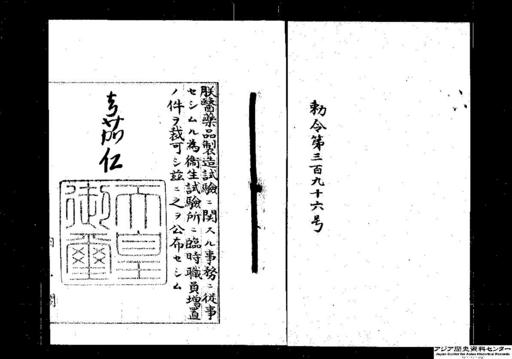 勅令第三百九十六号
朕醫藥品製造試驗ニ関スル事務ニ従事
セシムル為衞生試驗所ニ臨時職員増置
ノ件ヲ裁可シ玆ニ之ヲ公布セシム
嘉仁
天皇
御璽
アジア歴史資料センター
Japan Center for Asian Historical Records